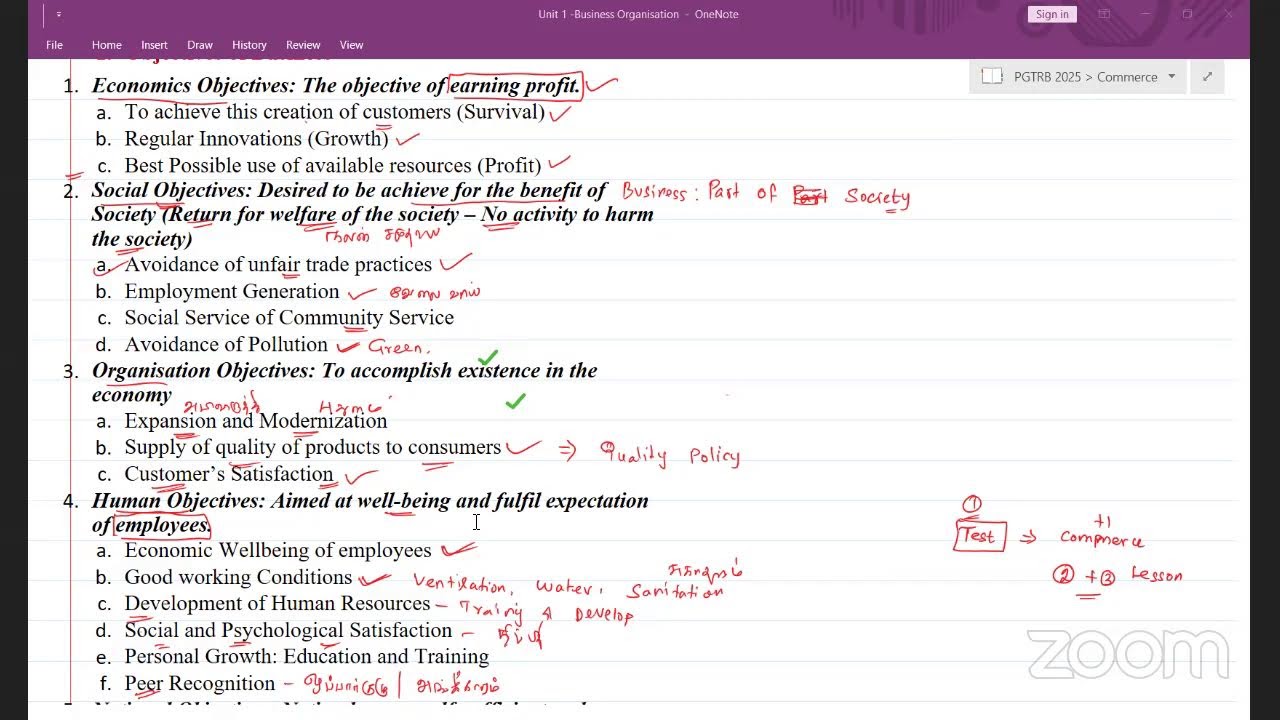 Unit 1 -Business Organisation - OneNote
Sign in
File Home Insert Draw History Review View
PGTRB 2025 > Commerce
1. Economics Objectives: The objective of earning profit.
a. To achieve this creation of customers (Survival)
b. Regular Innovations (Growth)
c. Best Possible use of available resources (Profit)
2. Social Objectives: Desired to be achieve for the benefit of Business: Part of Society
Society (Return for welfare of the society – No activity to harm
the society)
a. Avoidance of unfair trade practices
b. Employment Generation
c. Social Service of Community Service
d. Avoidance of Pollution Green.
3. Organisation Objectives: To accomplish existence in the
economy
a. Expansion and Modernization
b. Supply of quality of products to consumers ⇒ Quality Policy
c. Customer's Satisfaction
4. Human Objectives: Aimed at well-being and fulfil expectation
of employees.
①
Test ⇒ Commerce
+1
② + ③ Lesson
a. Economic Wellbeing of employees
b. Good working Conditions Ventilation, Water, Sanitation
c. Development of Human Resources – Training & Develop
d. Social and Psychological Satisfaction –
e. Personal Growth: Education and Training
f. Peer Recognition –
zoom